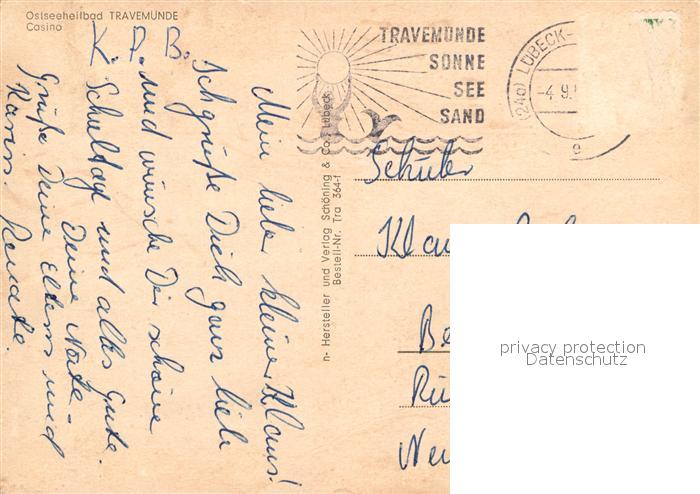 Ostseeheilbad TRAVEMÜNDE
Casino
TRAVEMÜNDE
SONNE
SEE
SAND
(24a) LÜBECK-
-4.9.
e
n- Hersteller und Verlag Schöning & Co., Lübeck
Bestell-Nr. Tra 364-f
Mein lieber kleiner Klaus!
Ich grüße Dich ganz lieb
und wünsche Dir schöne
Schultag und alles Gute.
Deine
Grüße Deine Eltern und
Karin. Renate.
Schüler
Klau
Be
Neu
privacy protection
Datenschutz